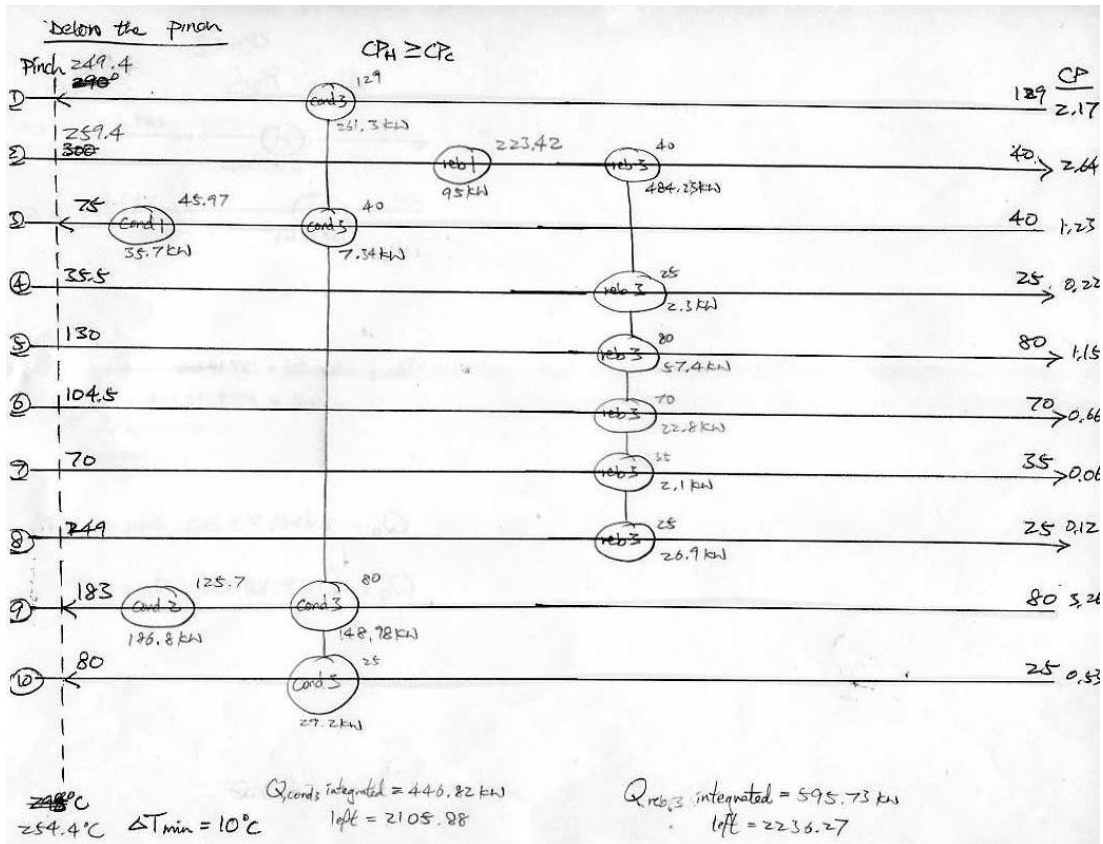 Below the pinch
CPH ≥ CPc
Pinch 249.4
290°
CP
① cond3 129 261.3 kW 129 2.17
259.4
② 300 reb1 223.42 95 kW reb3 40 484.23 kW 40 2.64
③ 75 cond1 45.97 35.7 kW cond3 40 7.34 kW 40 1.23
④ 35.5 reb3 25 2.3 kW 25 0.22
⑤ 130 reb3 80 57.4 kW 80 1.15
⑥ 104.5 reb3 70 22.8 kW 70 0.66
⑦ 70 reb3 35 2.1 kW 35 0.06
⑧ 249 reb3 25 26.9 kW 25 0.12
⑨ 183 cond2 125.7 186.8 kW cond3 80 148.98 kW 80 3.26
⑩ 80 cond3 25 29.2 kW 25 0.53
Q,cond3 integrated = 446.82 kW
left = 2105.88
Qreb,3 integrated = 595.73 kW
left = 2236.27
254.4°C ΔTmin = 10°C